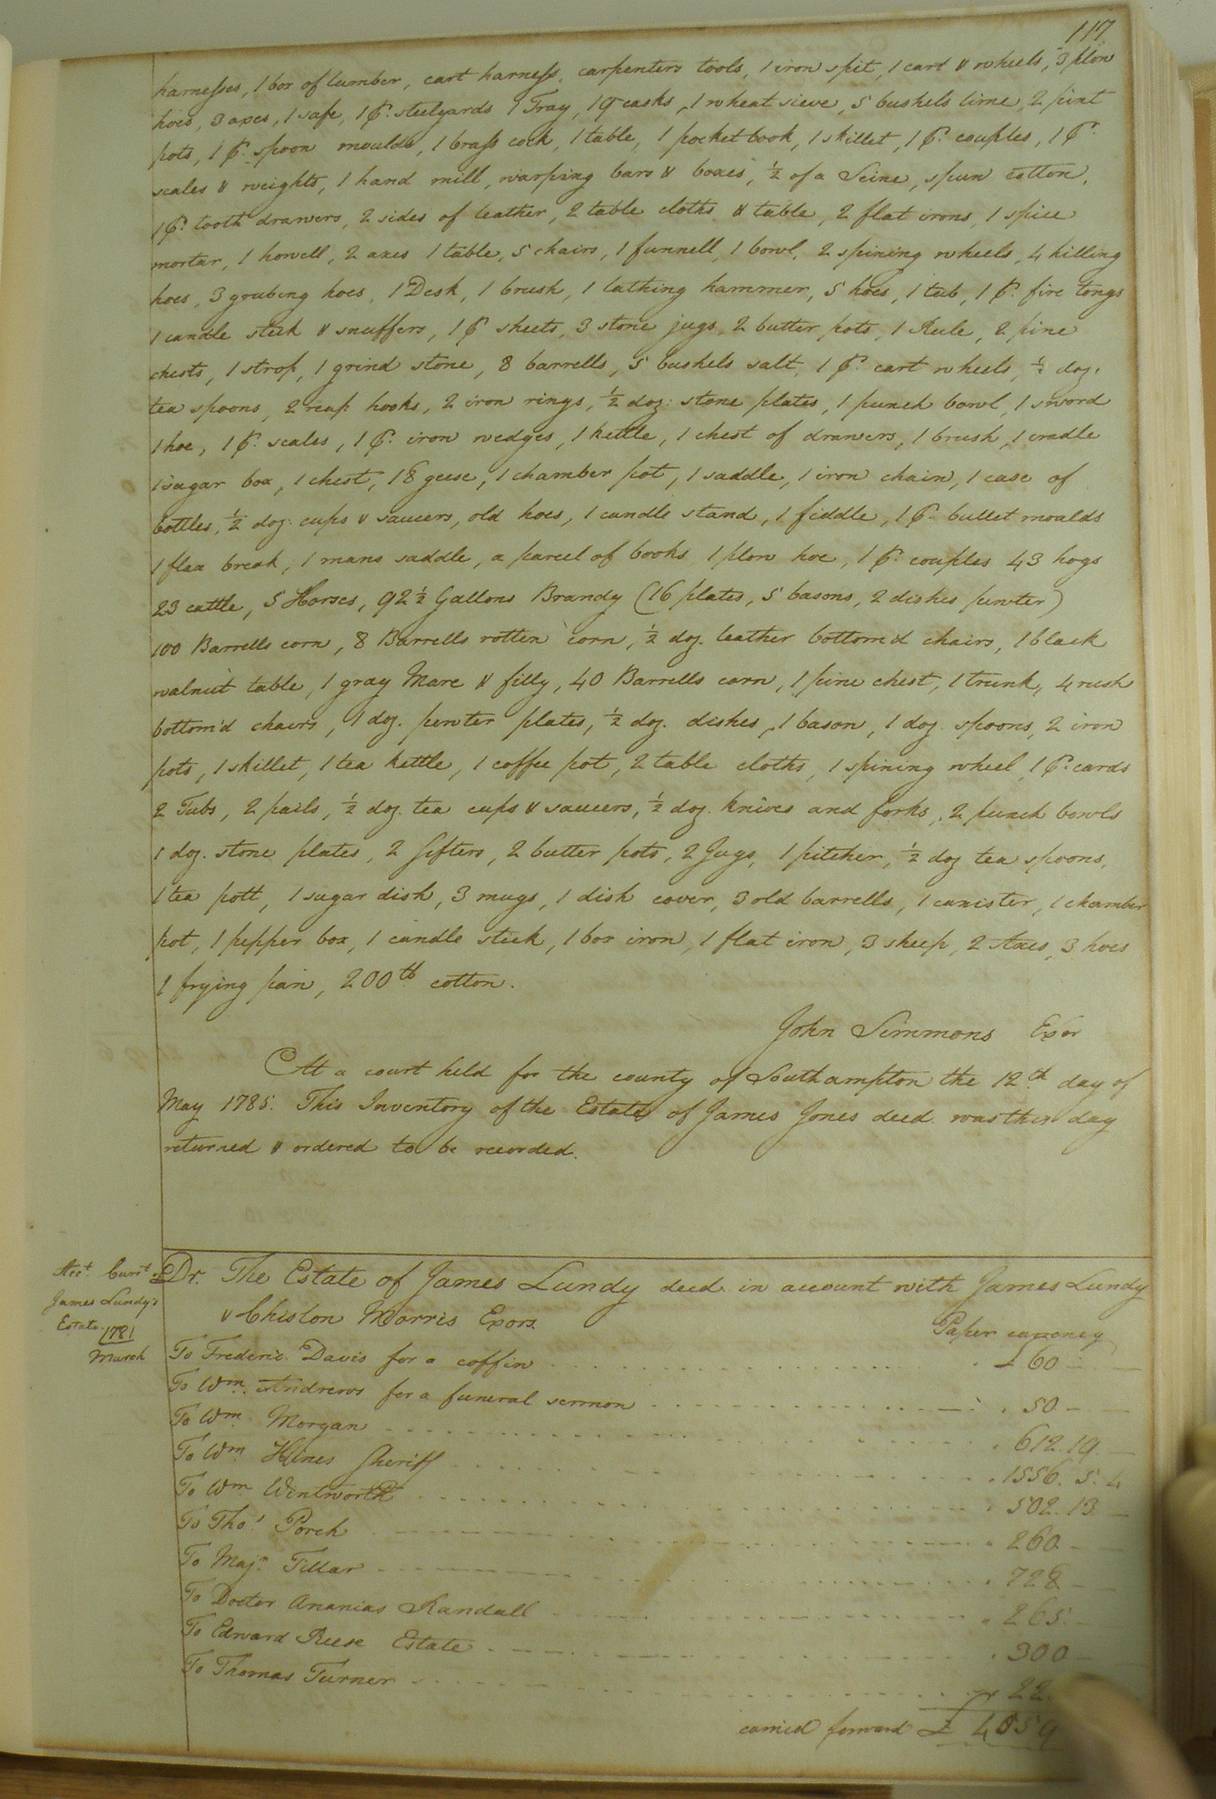 117
harnesses, 1 box of lumber, cart harness, carpenters tools, 1 iron spit, 1 cart & wheels, 3 plow
hoes, 3 axes, 1 safe, 1 pr. steelyards 1 Tray, 19 casks, 1 wheat sieve, 5 bushels lime, 2 pint
pots, 1 pr. spoon moulds, 1 brass cock, 1 table, 1 pocket book, 1 skillet, 1 pr. couples, 1 pr.
scales & weights, 1 hand mill, warping bars & boxes, ½ of a Seine, spun cotton,
1 pr. tooth drawers, 2 sides of leather, 2 table cloths & table, 2 flat irons, 1 spice
mortar, 1 howell, 2 axes 1 table, 5 chairs, 1 funnell, 1 bowl, 2 spining wheels, 4 hilling
hoes, 3 grubing hoes, 1 Desk, 1 brush, 1 lathing hammer, 5 hoes, 1 tub, 1 pr. fire tongs
1 candle stick & snuffers, 1 pr sheets, 3 stone jugs, 2 butter pots, 1 Rule, 2 pine
chests, 1 strop, 1 grind stone, 8 barrells, 5 bushels salt, 1 pr. cart wheels, ½ doz:
tea spoons, 2 reap hooks, 2 iron rings, ½ doz: stone plates, 1 punch bowl, 1 sword
1 hoe, 1 pr. scales, 1 pr. iron wedges, 1 kettle, 1 chest of drawers, 1 brush, 1 cradle
1 sugar box, 1 chest, 18 geese, 1 chamber pot, 1 saddle, 1 iron chain, 1 case of
bottles, ½ doz: cups & saucers, old hoes, 1 candle stand, 1 fiddle, 1 pr. bullet moulds
1 flax break, 1 mans saddle, a parcel of books 1 plow hoe, 1 pr. couples 43 hogs
23 cattle, 5 Horses, 92½ Gallons Brandy (16 plates, 5 basons, 2 dishes pewter)
100 Barrells corn, 8 Barrells rotten corn, ½ doz. leather bottom'd chairs, 1 black
walnut table, 1 gray Mare & filly, 40 Barrells corn, 1 pine chest, 1 trunk, 4 rush
bottom'd chairs, 1 doz. pewter plates, ½ doz. dishes, 1 bason, 1 doz. spoons, 2 iron
pots, 1 skillet, 1 tea kettle, 1 coffee pot, 2 table cloths, 1 spining wheel, 1 pr. cards
2 Tubs, 2 pails, ½ doz. tea cups & saucers, ½ doz. knives and forks, 2 punch bowls
1 doz. stone plates, 2 sifters, 2 butter pots, 2 Jugs, 1 pitcher, ½ doz tea spoons,
1 tea pott, 1 sugar dish, 3 mugs, 1 dish cover, 3 old barrells, 1 canister, 1 chamber
pot, 1 pepper box, 1 candle stick, 1 box iron, 1 flat iron, 3 sheep, 2 Axes, 3 hoes
1 frying pan, 200 lb cotton.
John Simmons Exor
At a court held for the county of Southampton the 12th day of
May 1785. This Inventory of the Estate of James Jones decd. was this day
returned & ordered to be recorded.
Acct. Curt. of
James Lundy's
Estate
1781
March
Dr. The Estate of James Lundy decd. in account with James Lundy
& Chislon Morris Exors.
Paper currency
To Frederic Davis for a coffin £ 60
To Wm. Andrews for a funeral sermon 50
To Wm. Morgan 612.19
To Wm Hines Sheriff 1556.5.4
To Wm Wintworth 502.13
To Thos. Porch 260
To Majr. Tillar 728
To Doctor Ananias Randall 265
To Edward Reese Estate 300
To Thomas Turner 22
carried forward £ 4859